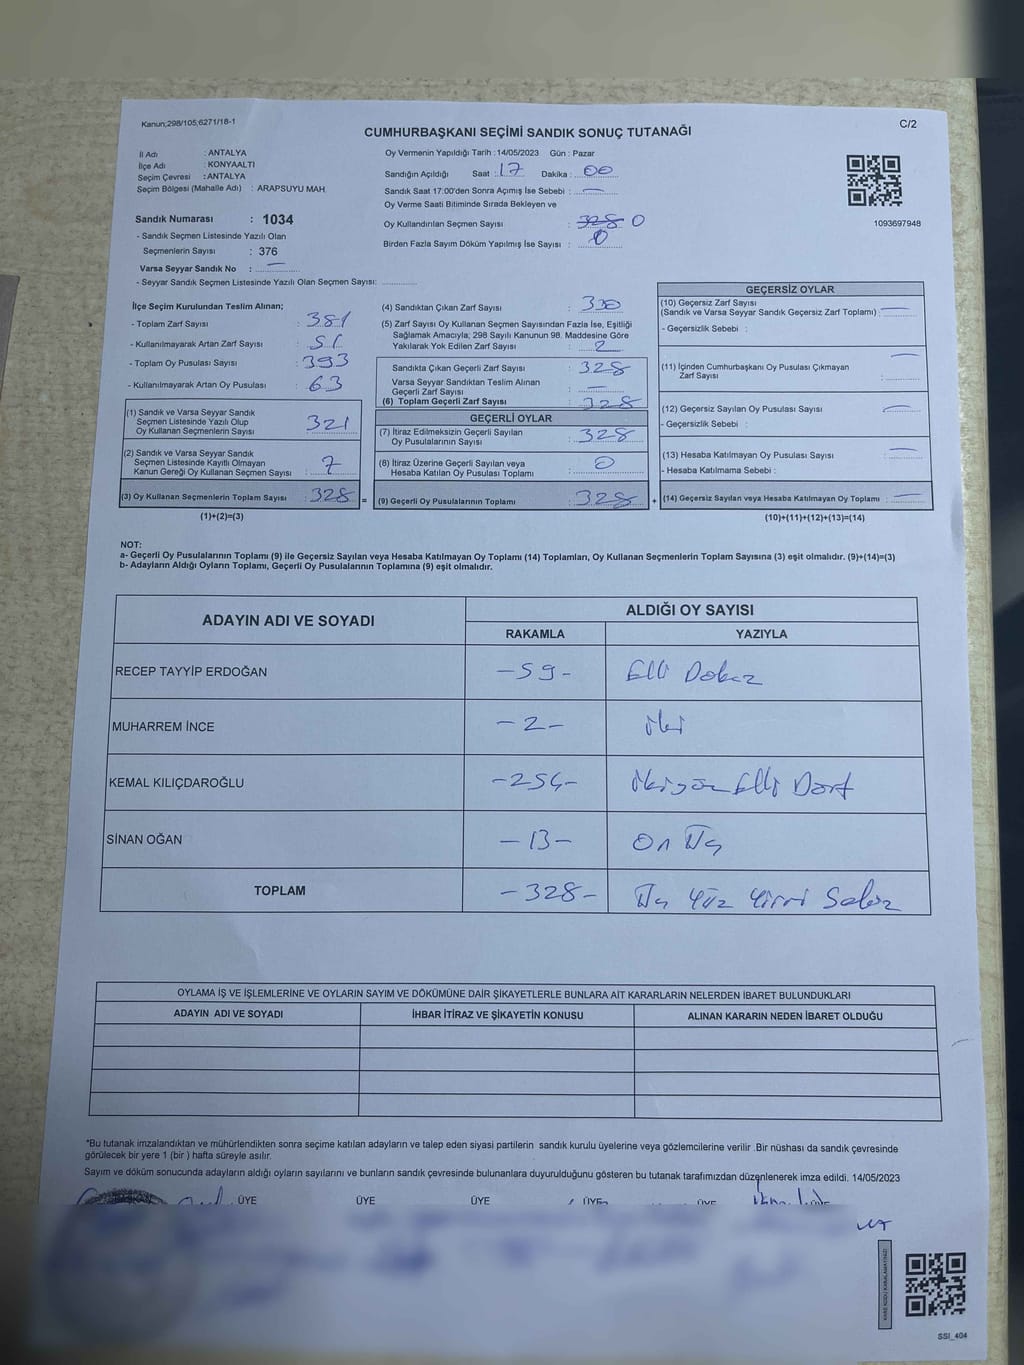 Kanun;298/105;6271/18-1
CUMHURBAŞKANI SEÇİMİ SANDIK SONUÇ TUTANAĞI
C/2
İl Adı : ANTALYA
İlçe Adı : KONYAALTI
Seçim Çevresi : ANTALYA
Seçim Bölgesi (Mahalle Adı) : ARAPSUYU MAH.
Sandık Numarası : 1034
- Sandık Seçmen Listesinde Yazılı Olan
Seçmenlerin Sayısı : 376
Varsa Seyyar Sandık No : —
- Seyyar Sandık Seçmen Listesinde Yazılı Olan Seçmen Sayısı:
Oy Vermenin Yapıldığı Tarih : 14/05/2023 Gün : Pazar
Sandığın Açıldığı Saat : 17 Dakika : 00
Sandık Saat 17:00'den Sonra Açımış İse Sebebi : —
Oy Verme Saati Bitiminde Sırada Bekleyen ve
Oy Kullandırılan Seçmen Sayısı : 328 0
Birden Fazla Sayım Döküm Yapılmış İse Sayısı : 0
1093697948
İlçe Seçim Kurulundan Teslim Alınan;
- Toplam Zarf Sayısı : 381
- Kullanılmayarak Artan Zarf Sayısı : 51
- Toplam Oy Pusulası Sayısı : 393
- Kullanılmayarak Artan Oy Pusulası : 63
(1) Sandık ve Varsa Seyyar Sandık
Seçmen Listesinde Yazılı Olup
Oy Kullanan Seçmenlerin Sayısı : 321
(2) Sandık ve Varsa Seyyar Sandık
Seçmen Listesinde Kayıtlı Olmayan
Kanun Gereği Oy Kullanan Seçmen Sayısı : 7
(3) Oy Kullanan Seçmenlerin Toplam Sayısı : 328 =
(1)+(2)=(3)
(4) Sandıktan Çıkan Zarf Sayısı : 330
(5) Zarf Sayısı Oy Kullanan Seçmen Sayısından Fazla İse, Eşitliği
Sağlamak Amacıyla; 298 Sayılı Kanunun 98. Maddesine Göre
Yakılarak Yok Edilen Zarf Sayısı : 2
Sandıkta Çıkan Geçerli Zarf Sayısı : 328
Varsa Seyyar Sandıktan Teslim Alınan
Geçerli Zarf Sayısı : —
(6) Toplam Geçerli Zarf Sayısı : 328
GEÇERLİ OYLAR
(7) İtiraz Edilmeksizin Geçerli Sayılan
Oy Pusulalarının Sayısı : 328
(8) İtiraz Üzerine Geçerli Sayılan veya
Hesaba Katılan Oy Pusulası Toplamı : 0
(9) Geçerli Oy Pusulalarının Toplamı : 328 +
GEÇERSİZ OYLAR
(10) Geçersiz Zarf Sayısı
(Sandık ve Varsa Seyyar Sandık Geçersiz Zarf Toplamı) : —
- Geçersizlik Sebebi :
(11) İçinden Cumhurbaşkanı Oy Pusulası Çıkmayan
Zarf Sayısı : —
(12) Geçersiz Sayılan Oy Pusulası Sayısı : —
- Geçersizlik Sebebi :
(13) Hesaba Katılmayan Oy Pusulası Sayısı : —
- Hesaba Katılmama Sebebi :
(14) Geçersiz Sayılan veya Hesaba Katılmayan Oy Toplamı : —
(10)+(11)+(12)+(13)=(14)
NOT:
a- Geçerli Oy Pusulalarının Toplamı (9) ile Geçersiz Sayılan veya Hesaba Katılmayan Oy Toplamı (14) Toplamları, Oy Kullanan Seçmenlerin Toplam Sayısına (3) eşit olmalıdır. (9)+(14)=(3)
b- Adayların Aldığı Oyların Toplamı, Geçerli Oy Pusulalarının Toplamına (9) eşit olmalıdır.
ADAYIN ADI VE SOYADI ALDIĞI OY SAYISI
RAKAMLA YAZIYLA
RECEP TAYYİP ERDOĞAN -59- Elli Dokuz
MUHARREM İNCE -2- iki
KEMAL KILIÇDAROĞLU -254- ikiyüz Elli Dört
SİNAN OĞAN -13- On Üç
TOPLAM -328- Üç Yüz Yirmi Sekiz
OYLAMA İŞ VE İŞLEMLERİNE VE OYLARIN SAYIM VE DÖKÜMÜNE DAİR ŞİKAYETLERLE BUNLARA AİT KARARLARIN NELERDEN İBARET BULUNDUKLARI
ADAYIN ADI VE SOYADI İHBAR İTİRAZ VE ŞİKAYETİN KONUSU ALINAN KARARIN NEDEN İBARET OLDUĞU
*Bu tutanak imzalandıktan ve mühürlendikten sonra seçime katılan adayların ve talep eden siyasi partilerin sandık kurulu üyelerine veya gözlemcilerine verilir .Bir nüshası da sandık çevresinde
görülecek bir yere 1 (bir ) hafta süreyle asılır.
Sayım ve döküm sonucunda adayların aldığı oyların sayılarını ve bunların sandık çevresinde bulunanlara duyurulduğunu gösteren bu tutanak tarafımızdan düzenlenerek imza edildi. 14/05/2023
BAŞKAN ÜYE ÜYE ÜYE ÜYE ÜYE
SSI_404